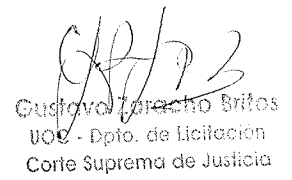 Gustavo Zaracho Britos
UOC - Dpto. de Licitación
Corte Suprema de Justicia